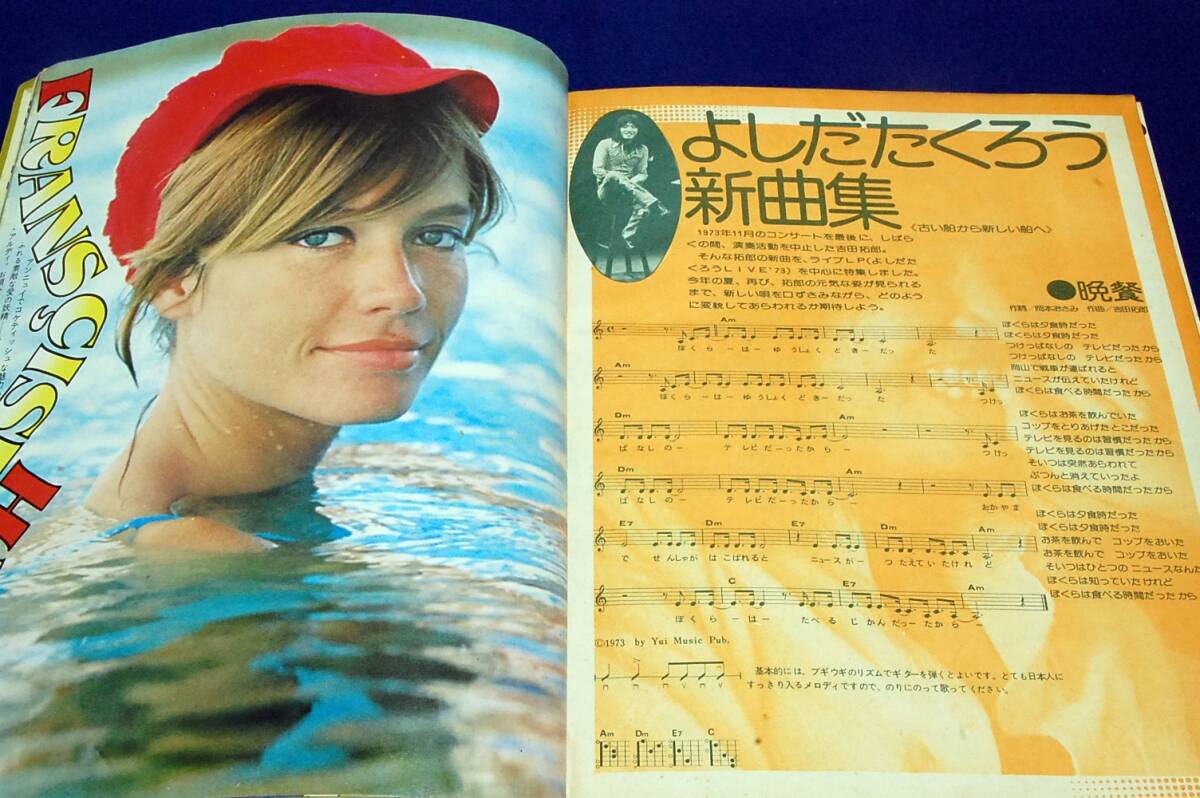 FRANSÇISE H
アンニュイでコケティッシュな魅力
ふれる素敵な愛の妖精——
よしだたくろう
新曲集
《古い船から新しい船へ》
1973年11月のコンサートを最後に、しばら
くの間、演奏活動を中止した吉田拓郎。
そんな拓郎の新曲を、ライブLP(よしだた
くろうLIVE'73)を中心に特集しました。
今年の夏、再び、拓郎の元気な姿が見られる
まで、新しい唄を口ずさみながら、どのよう
に変貌してあらわれるか期待しよう。
●晩餐
作詞/岡本おさみ 作曲/吉田拓郎
Am
ぼくらーはー ゆうしょく どきーだっ た
Am
ぼくらーはー ゆうしょく どきーだっ た つけっ
Dm Am
ぱなしのー テレビだーったからー つけっ
Dm Am
ぱなしのー テレビだーったからー おかやま
E7 Dm E7 Dm Am
で せんしゃが はこばれると ニュースがー つたえていたけれ ど
C E7 Am
ぼくらーはー たべる じかんだったからー
ぼくらは夕食時だった
ぼくらは夕食時だった
つけっぱなしの テレビだったから
つけっぱなしの テレビだったから
岡山で戦車が運ばれると
ニュースが伝えていたけれど
ぼくらは食べる時間だったから
ぼくらはお茶を飲んでいた
コップをとりあげたとこだった
テレビを見るのは習慣だったから
テレビを見るのは習慣だったから
そいつは突然あらわれて
ぷつんと消えていったよ
ぼくらは食べる時間だったから
ぼくらは夕食時だった
ぼくらは夕食時だった
お茶を飲んで コップをおいた
お茶を飲んで コップをおいた
そいつはひとつの ニュースなんだ
ぼくらは知っていたけれど
ぼくらは食べる時間だったから
©1973 by Yui Music Pub.
基本的には、ブギウギのリズムでギターを弾くとよいです。とても日本人に
すっきり入るメロディですので、のりにのって歌ってください。
Am Dm E7 C